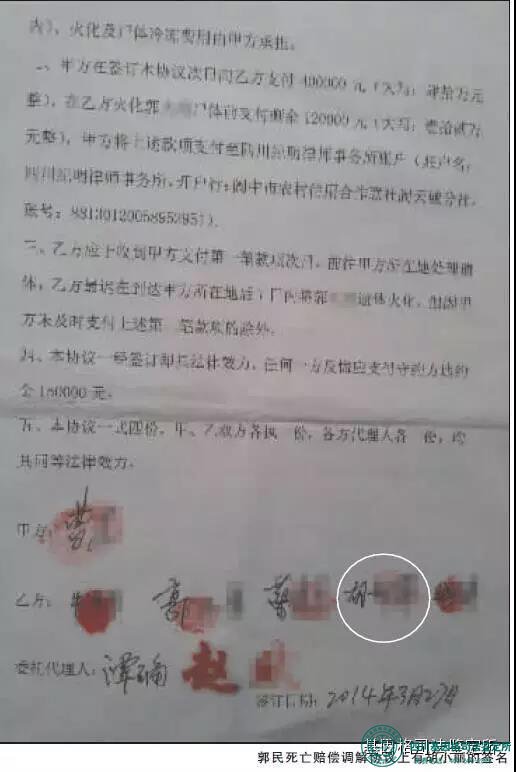 内)，火化及尸体冷冻费用由甲方承担。
二、甲方在签订本协议次日向乙方支付400000元（大写：肆拾万元
整），在乙方火化郭 尸体前支付剩余120000元（大写：壹拾贰万
元整），甲方将上述款项支付至四川 明律师事务所账户（账户名：
四川 明律师事务所，开户行：阆中市农村信用合作联社 天 分社，
账号：
三、乙方应于收到甲方支付第一笔款项次日，前往甲方所在地处理遗
体，乙方最迟在到达甲方所在地后 日内将郭 遗体火化，但因甲
方未及时支付上述第 笔款项的除外。
四、本协议一经签订即具法律效力，任何一方反悔应支付守约方违约
金180000元。
五、本协议一式四份，甲、乙双方各执 份，各方代理人各 份，均
具同等法律效力。
甲方：
乙方： 郭 胡
委托代理人：谭 赵
签订日期：2014年3月27日
郭民死亡赔偿调解协议上有胡小丽的签名